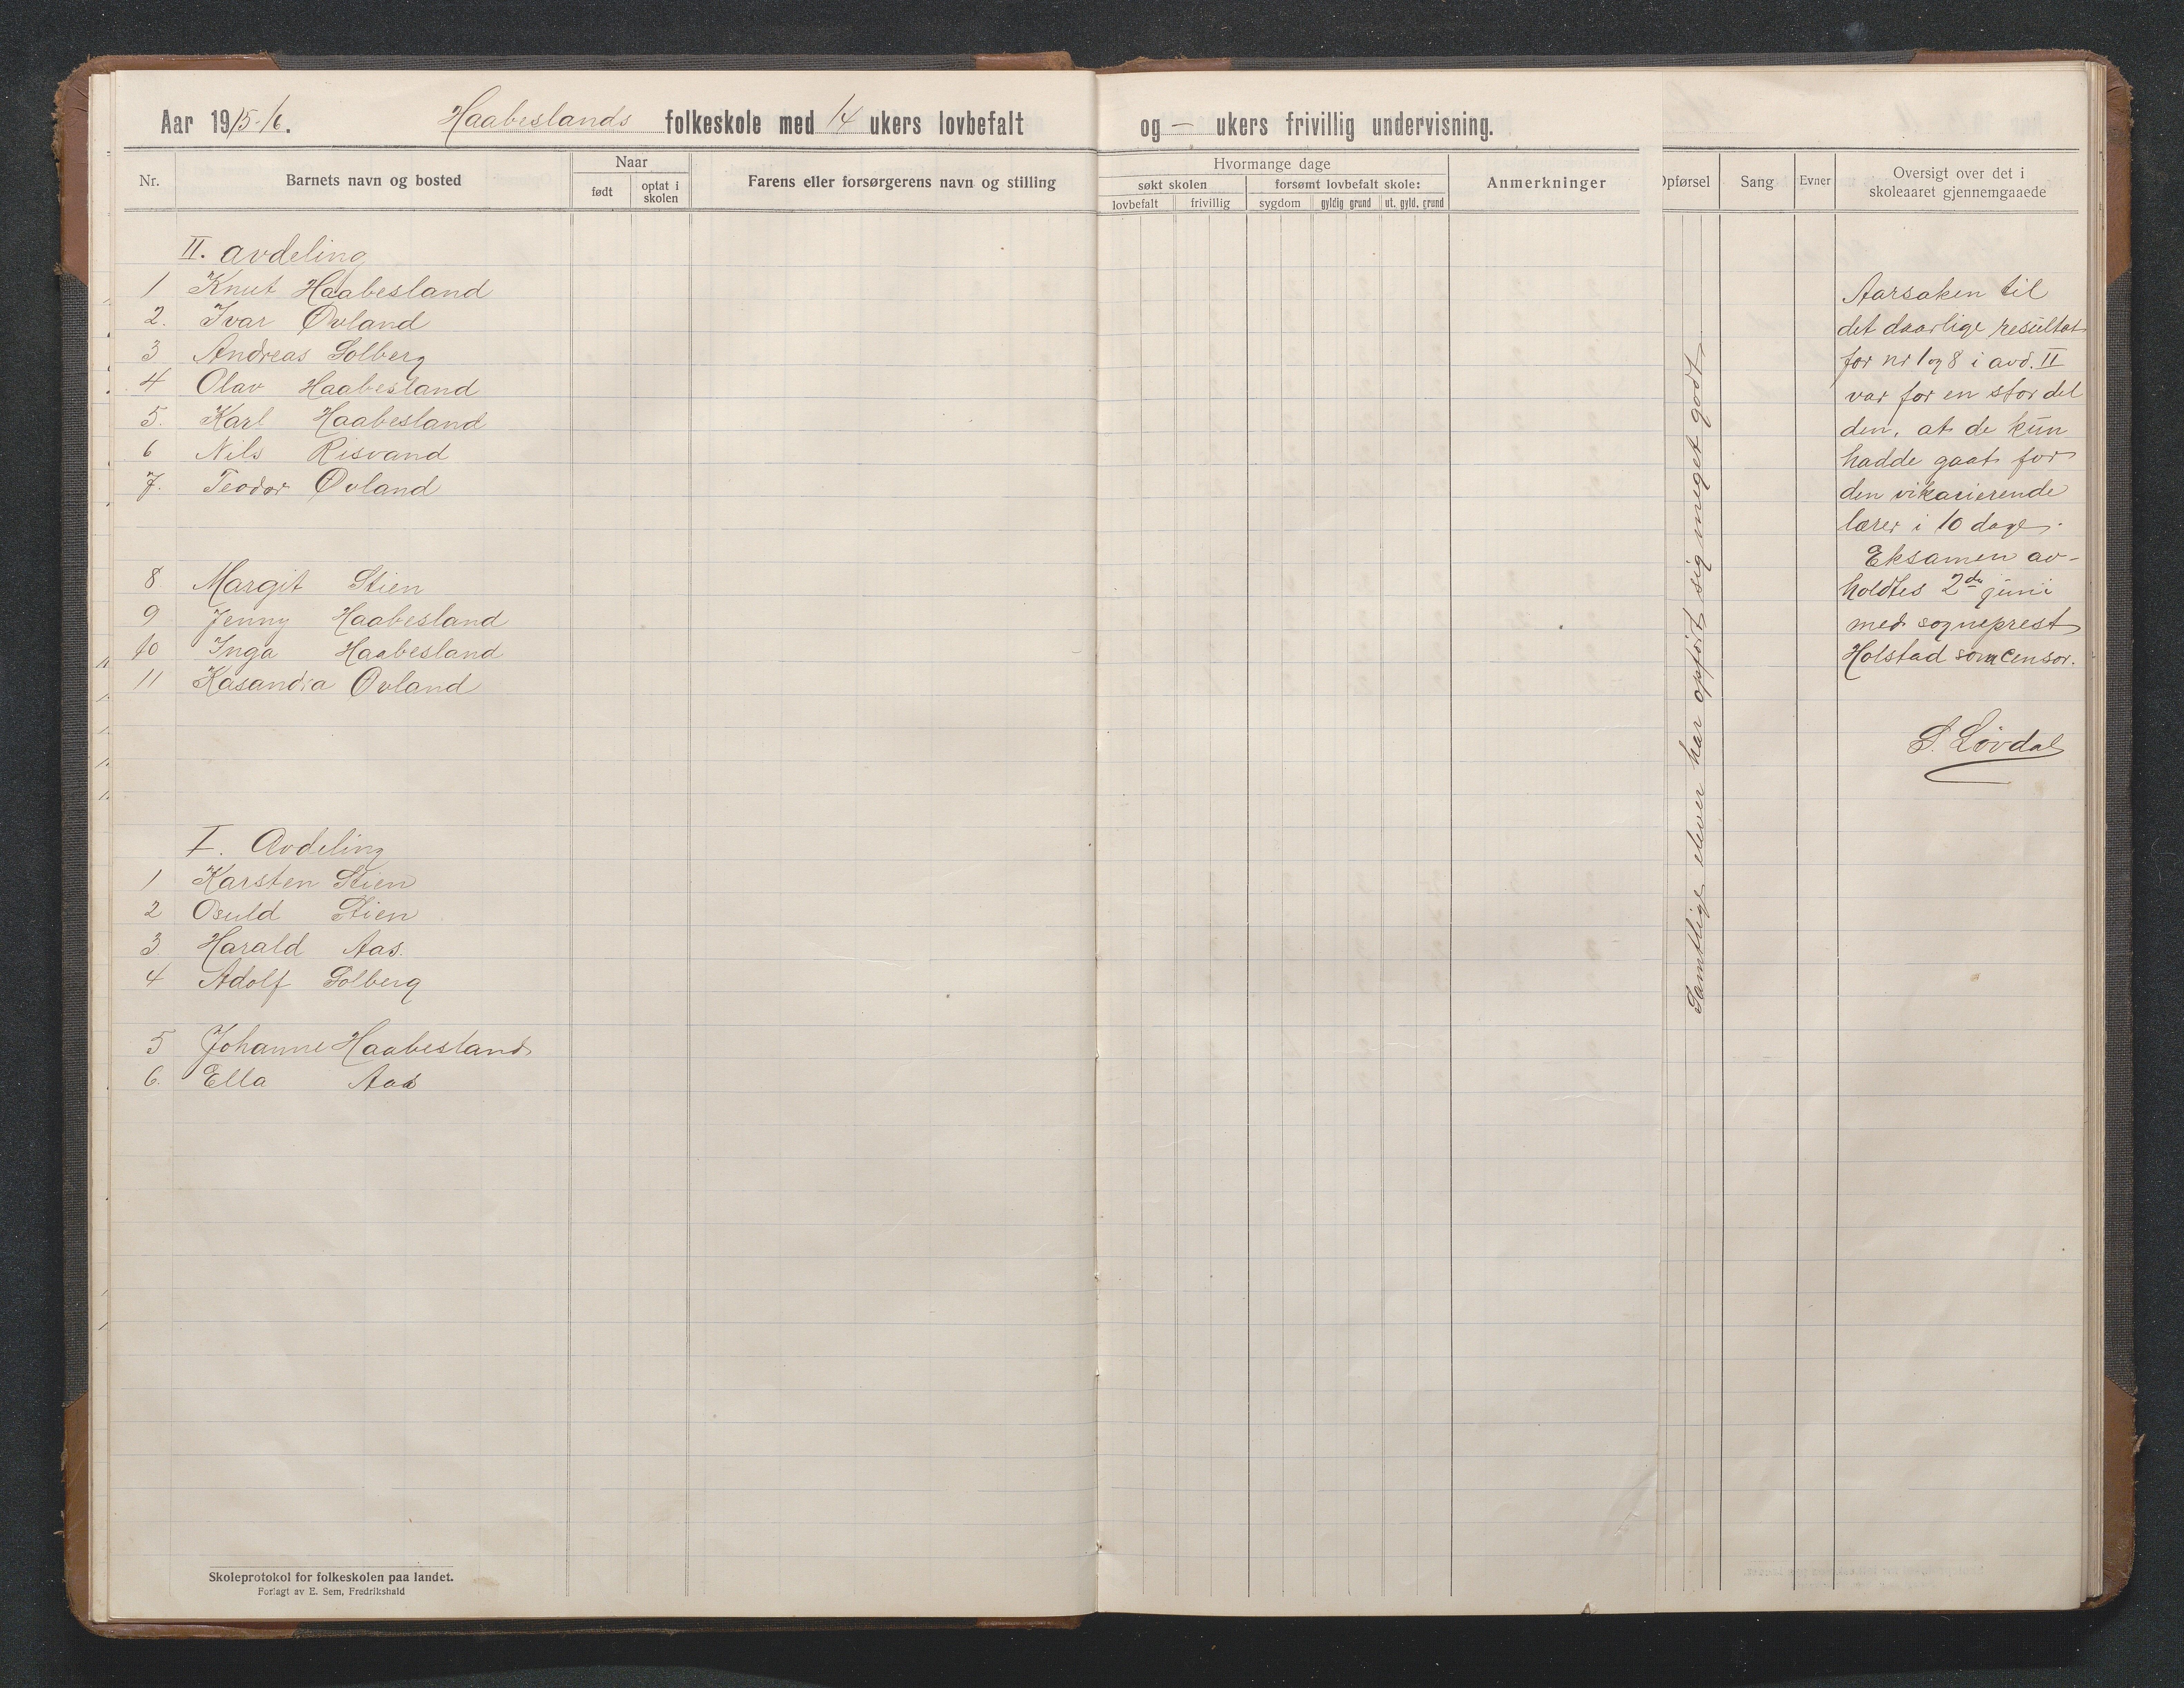 Aar 1915-16. Haabeslands folkeskole med 14 ukers lovbefalt og – ukers frivillig undervisning.
Nr.
Barnets navn og bosted
Naar
født
optat i skolen
Farens eller forsørgerens navn og stilling
Hvormange dage
søkt skolen
forsømt lovbefalt skole:
lovbefalt
frivillig
sygdom
gyldig grund
ut. gyld. grund
Anmerkninger
Opførsel
Sang
Evner
Oversigt over det i
skoleaaret gjennemgaaede
II. avdeling
1 Knut Haabesland
2. Ivar Øvland
3 Andreas Solberg
4 Olav Haabesland
5. Karl Haabesland
6 Nils Risvand
7. Teodor Øvland
8 Margit Stien
9 Jenny Haabesland
10 Inga Haabesland
11 Kasandra Øvland
I. Avdeling
1 Karsten Stien
2 Osuld Stien
3 Harald Aas.
4 Adolf Solberg
5 Johanne Haabesland
6. Ella Aas
Samtlige elever har opført sig meget godt
Aarsaken til
det daarlige resultat
for nr 1 og 8 i avd. II
var for en stor del
den, at de kun
hadde gaat for
den vikarierende
lærer i 10 dage.
Eksamen av-
holdtes 2den juni
med sogneprest
Holstad som censor.
S. Løvdal
Skoleprotokol for folkeskolen paa landet.
Forlagt av E. Sem, Fredrikshald